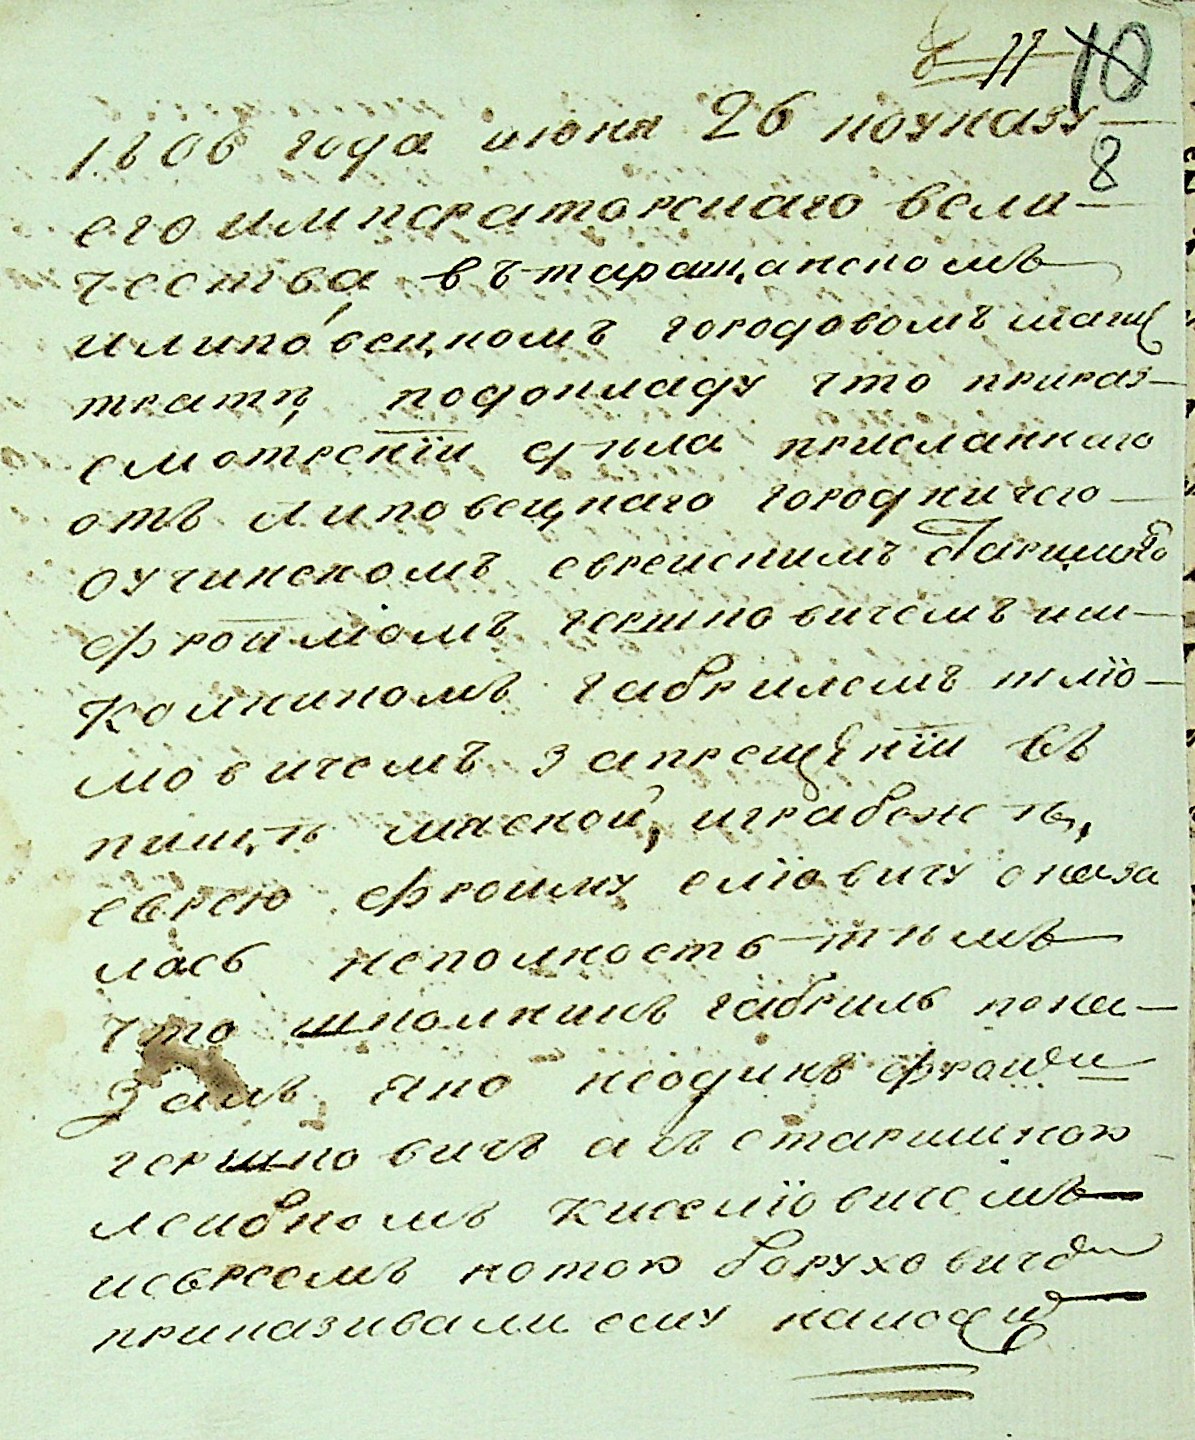 8 11 10
1806 года июня 26 поуказу
8
его императорскаго вели-
чества въ таращанскомъ
илиповецкомъ городовомъ маги
стратѣ, подокладу чтоприраз-
смотрении дѣла присланнаго
отъ липовецкаго городничего
оучинскомъ евреискимъ старшиною
фроимомъ гершковичемъ иш-
колникомъ габрилемъ шлїо-
мовичемъ запрещенїи въ
пищѣ мяской, играбежѣ,
еврею фроиму елїовичу оказа
лась неполность тѣмъ
что школникъ габриль пока-
залъ яко неодинъ фроим
гершковичъ а съ старшиною
леибкомъ киселїовичемъ
иевреемъ котою боруховичем
приказивали ему